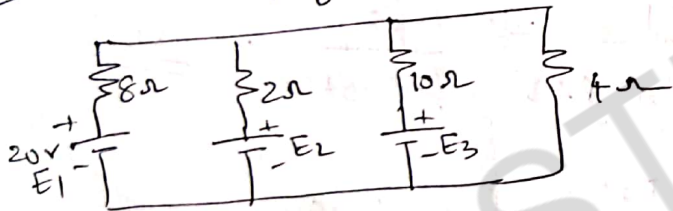 8Ω
2Ω
10Ω
4Ω
+
20V
E1 -
+
- E2
+
- E3
ST